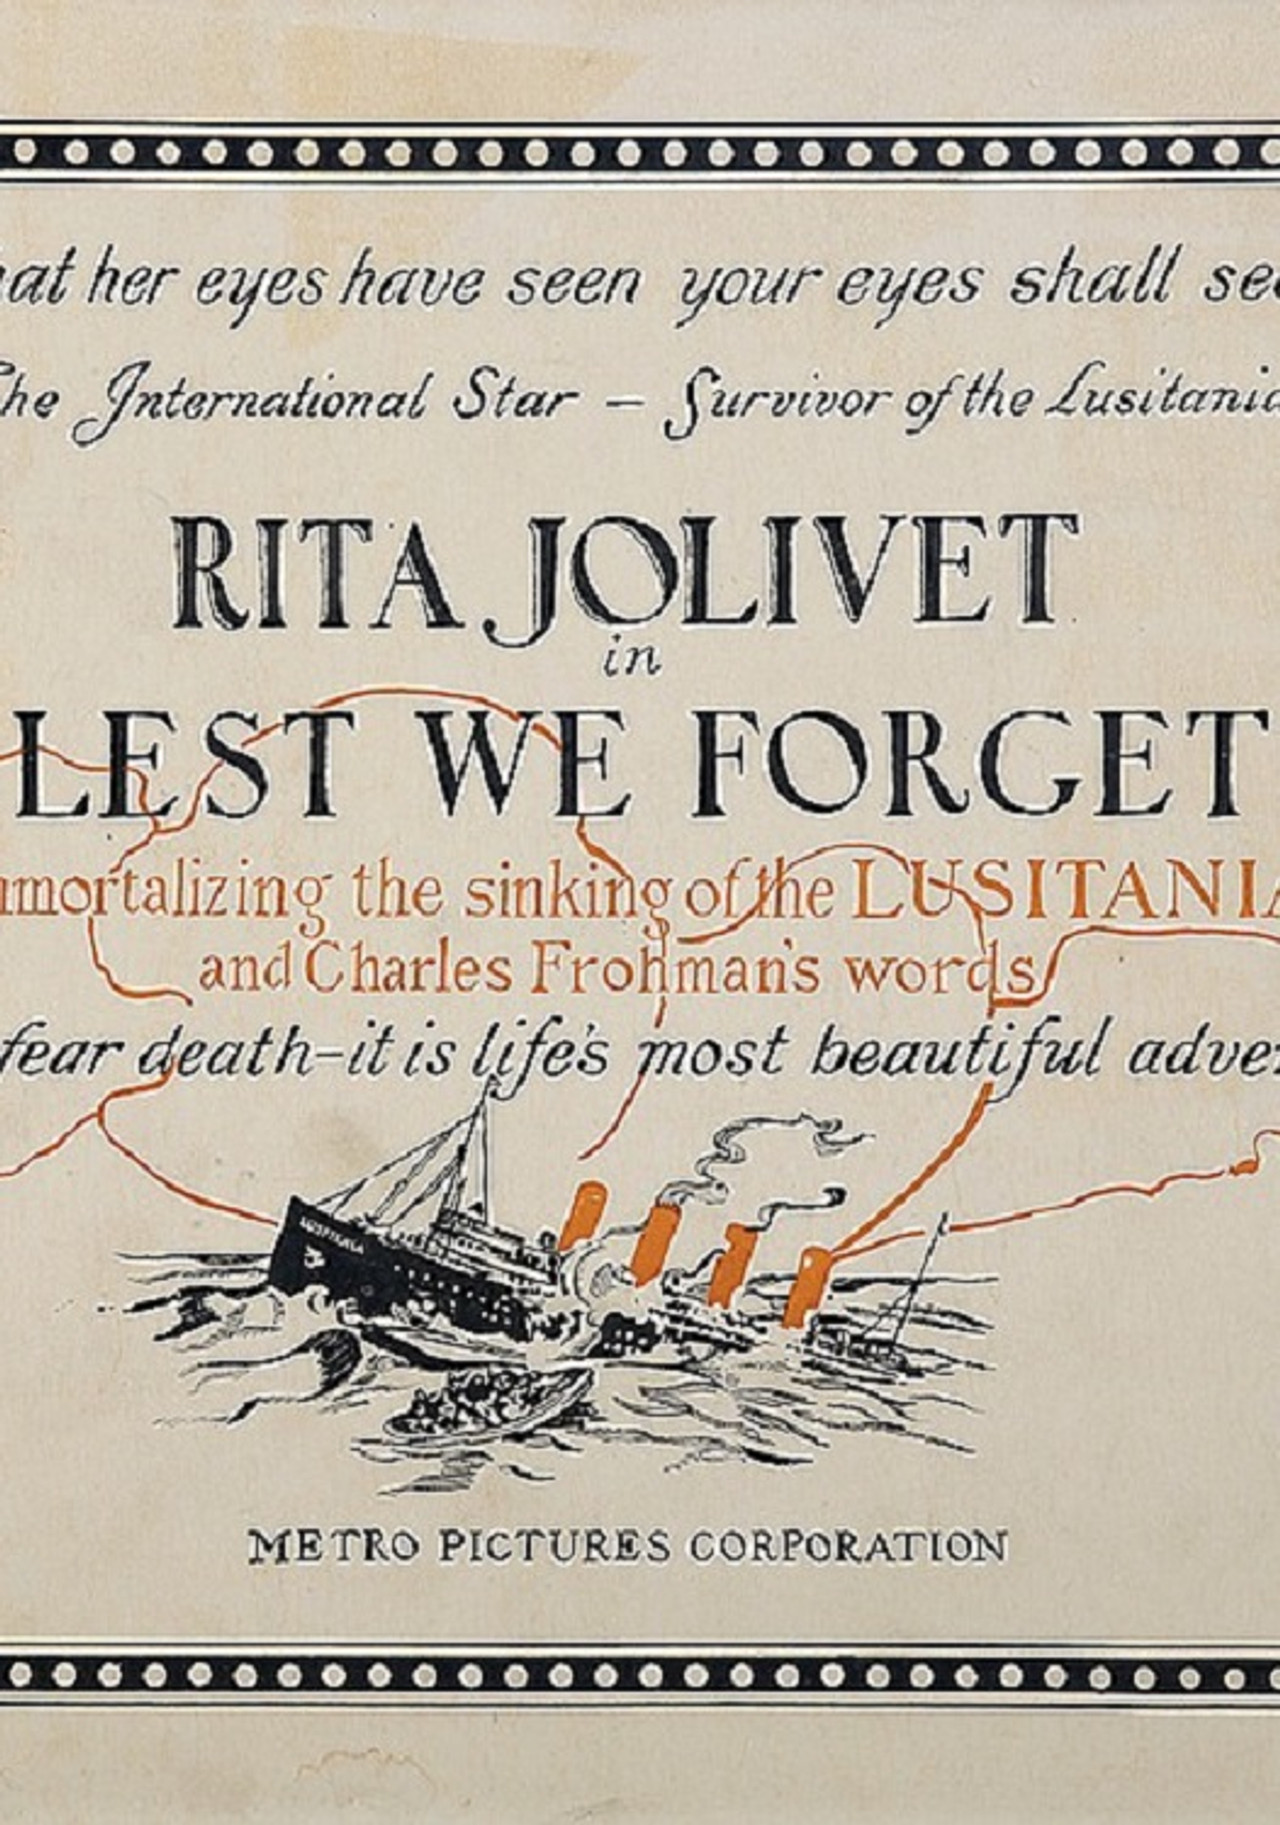 hat her eyes have seen your eyes shall see
The International Star — Survivor of the Lusitania
RITA JOLIVET
in
LEST WE FORGET
mmortalizing the sinking of the LUSITANIA
and Charles Frohman's words
fear death-it is life's most beautiful adve
LUSITANIA
METRO PICTURES CORPORATION